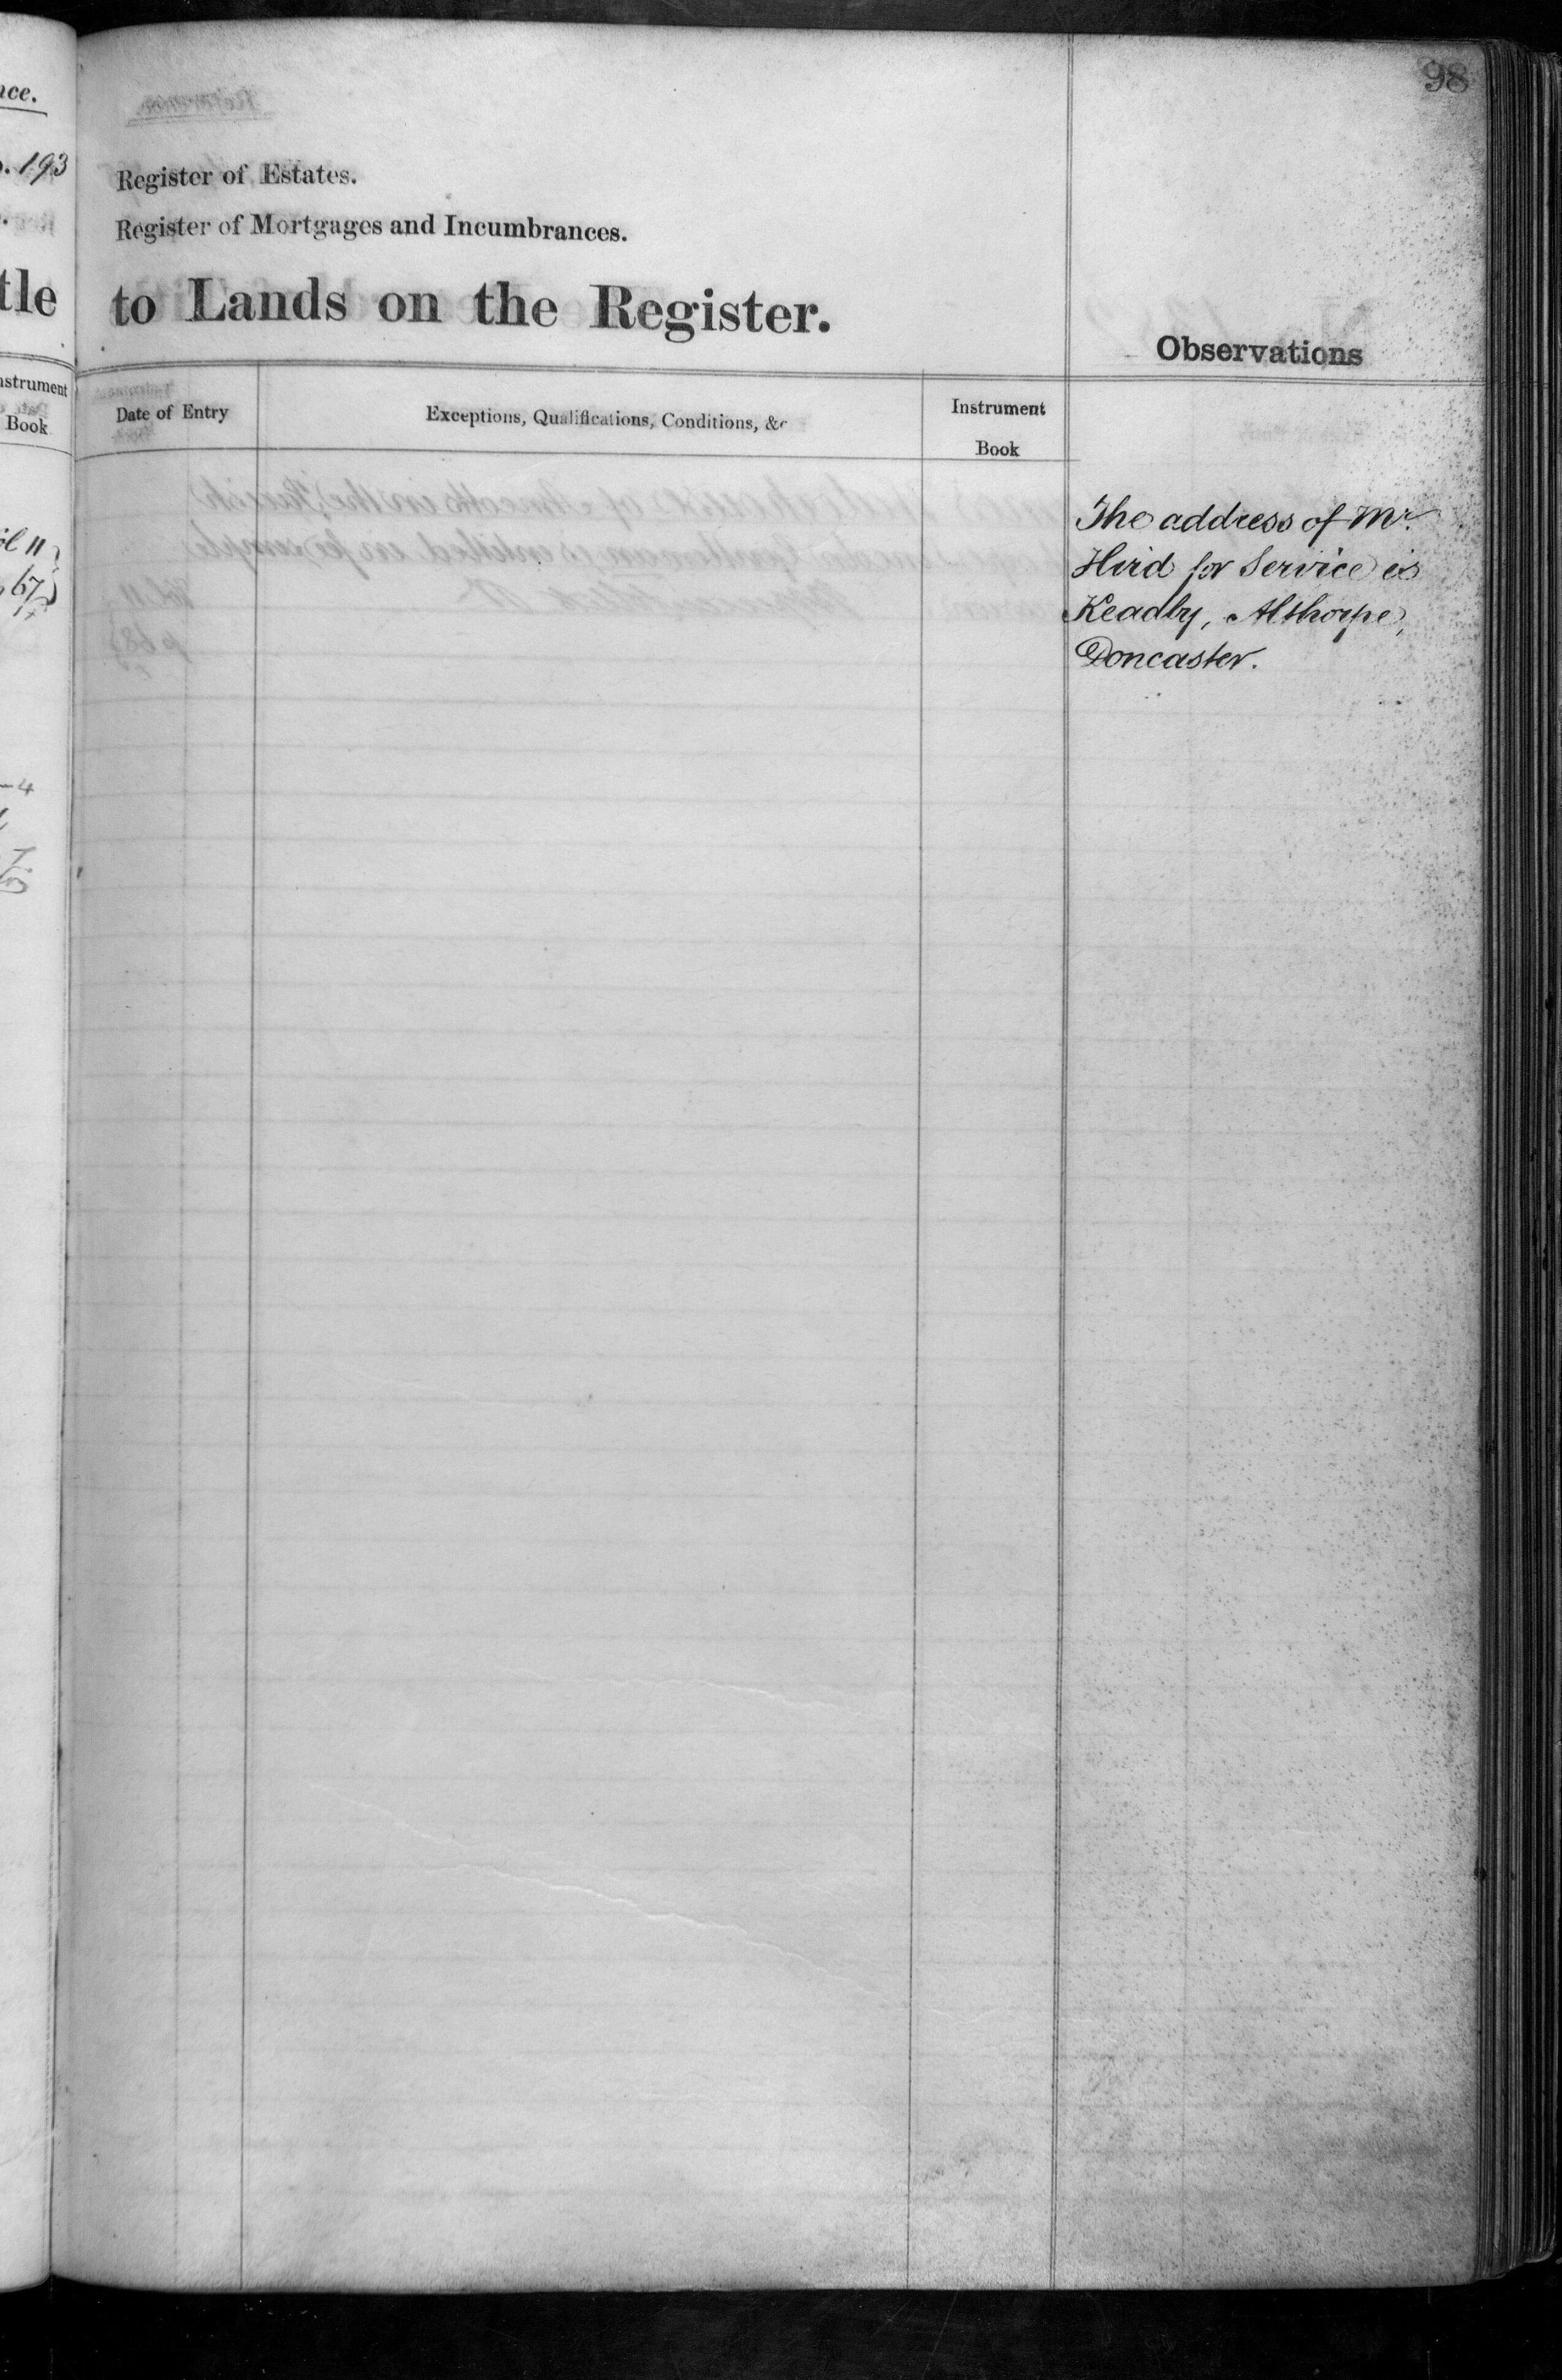 98
Register of Estates.
Register of Mortgages and Incumbrances.
to Lands on the Register.
Observations
Date of Entry
Exceptions, Qualifications, Conditions, &c
Instrument
Book
The address of Mr.
Hird for Service is
Keadby, Althorpe,
Doncaster.
nce.
. 193
tle
nstrument
Book
l 11
67